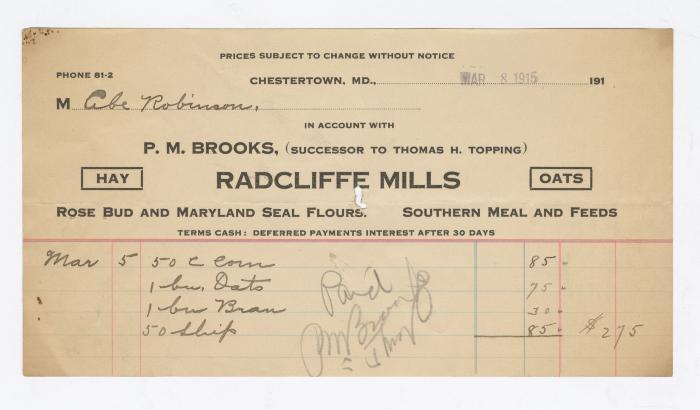 PRICES SUBJECT TO CHANGE WITHOUT NOTICE
PHONE 81-2
CHESTERTOWN, MD., MAR 8 1915 191
M Abe Robinson,
IN ACCOUNT WITH
P. M. BROOKS, (SUCCESSOR TO THOMAS H. TOPPING)
HAY RADCLIFFE MILLS OATS
ROSE BUD AND MARYLAND SEAL FLOURS. SOUTHERN MEAL AND FEEDS
TERMS CASH: DEFERRED PAYMENTS INTEREST AFTER 30 DAYS
Mar 5 50 C Corn 85
1 bu. Oats 75
1 bu Bran 30
50 Ship 85 $ 275
Paid
PM Brooks